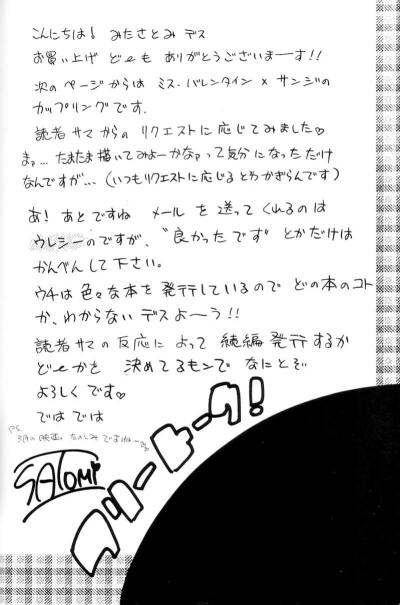 こんにちは! みたさとみ デス
お買い上げ どーも ありがとうございまーす!!
次の ページからは ミス・バレンタイン × サンジの
カップリングです.
読者サマ からの リクエストに 応じてみました♡
まァ... たまたま描いてみよーかなァって気分に なった だけ
なんですが... (いつもリクエストに応じるとわかぎらんです)
あ! あとですね メール を 送ってくれるのは
ウレシーのですが、"良かったです" とかだけは
かんべんして下さい。
ウチは色々な本を発行しているので どの本のコト
か、わからない デスよ〜う!!
読者サマの反応に よって 続編発行するか
どーかを 決めてるモンで なにとぞ
よろしくです♡
ではでは
P.S.
3月の映画 たのしみ ですねー
SATOMi